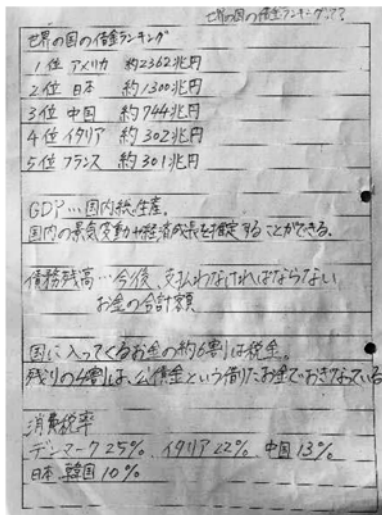 世界の国の借金ランキング??
世界の国の借金ランキング
1位 アメリカ 約2362兆円
2位 日本 約1300兆円
3位 中国 約744兆円
4位 イタリア 約302兆円
5位 フランス 約301兆円
GDP…国内総生産。
国内の景気変動や経済成長を推定することができる。
債務残高…今後、支払わなければならない
お金の合計額
国に入ってくるお金の約6割は税金。
残りの4割は、公債金という借りたお金でおぎなっている
消費税率
デンマーク25% イタリア22% 中国13%
日本 韓国10%